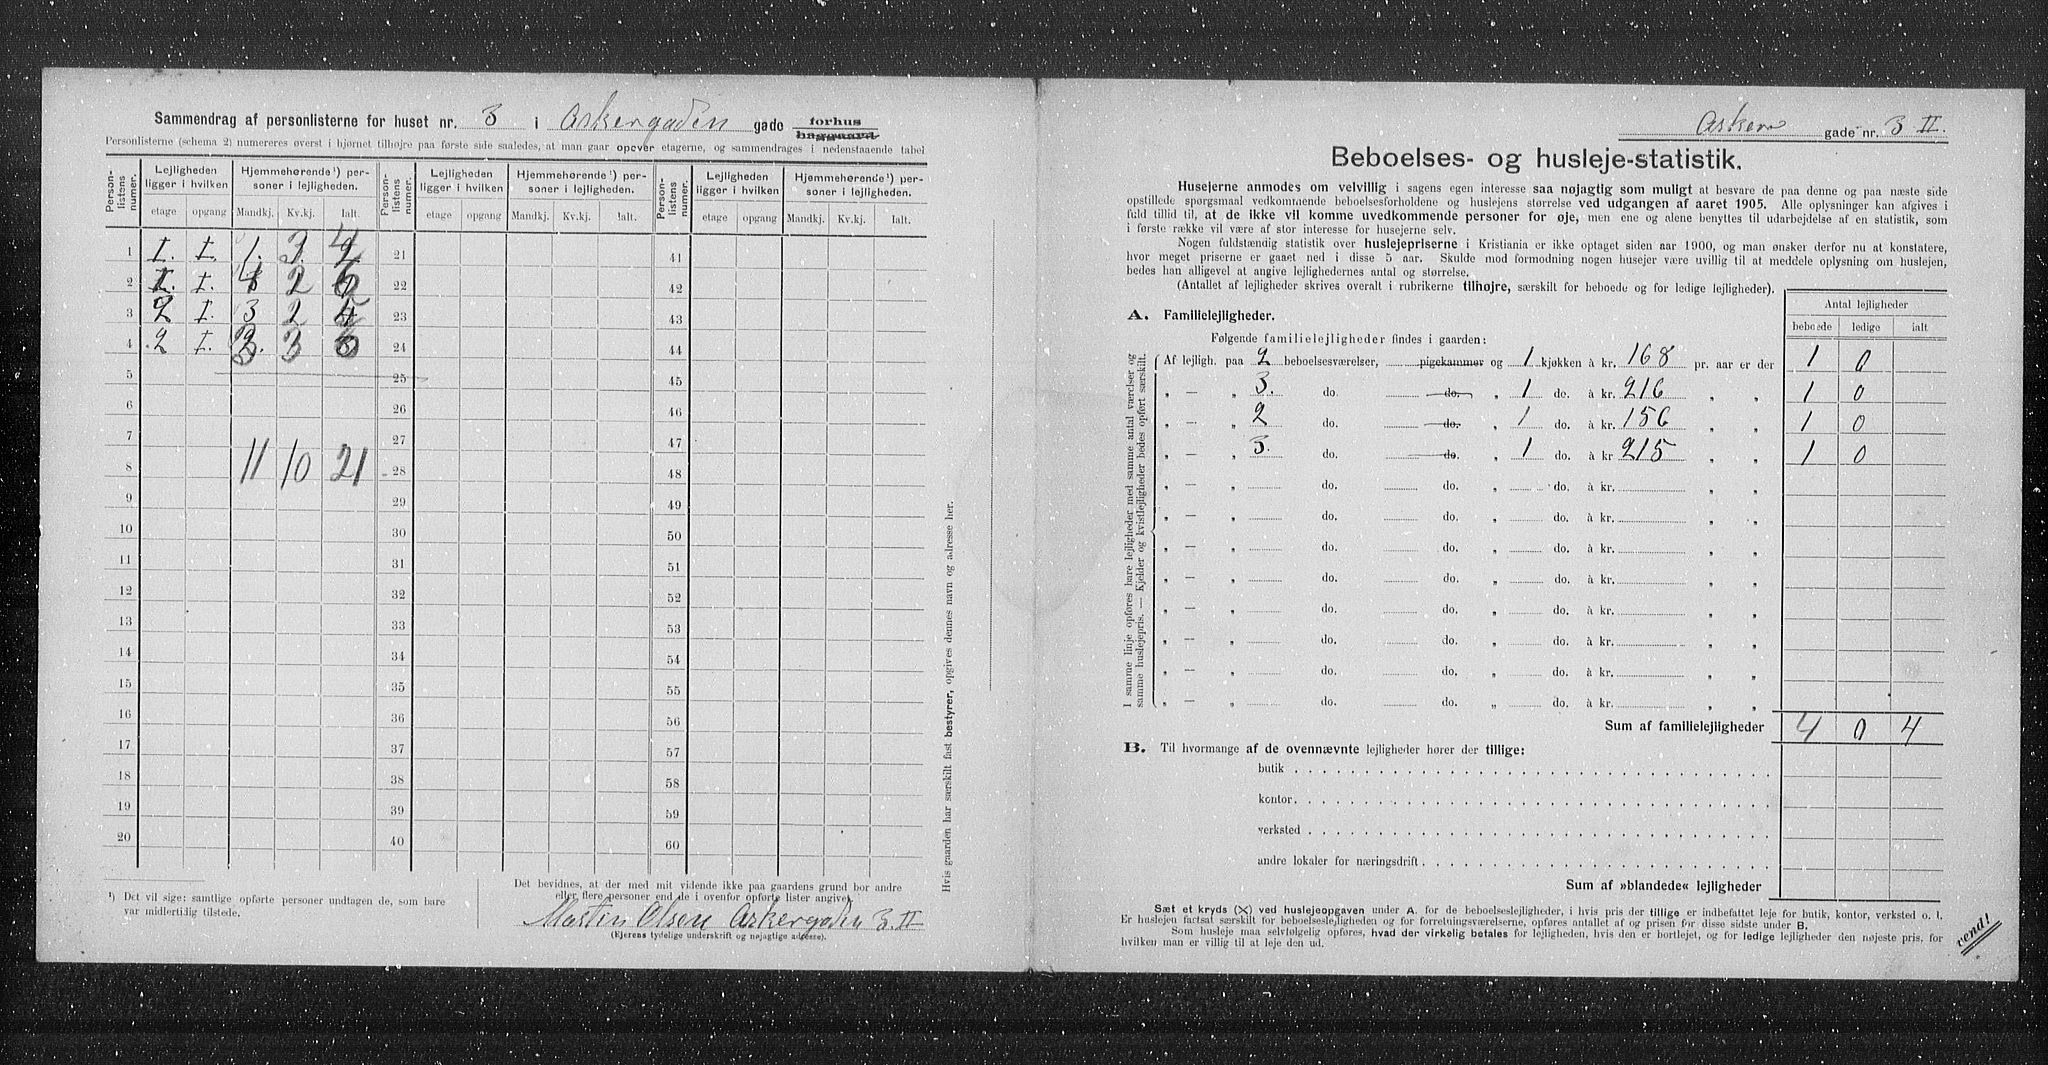 Sammendrag af personlisterne for huset nr. 3 i Askergaden gade forhus baggaard
Personlisterne (schema 2) numereres øverst i hjørnet tilhøjre paa første side saaledes, at man gaar opover etagerne, og sammendrages i nedenstaaende tabel
Person-listens numer. Lejligheden ligger i hvilken Hjemmehørende¹) personer i lejligheden. Person-listens numer. Lejligheden ligger i hvilken Hjemmehørende¹) personer i lejligheden. Person-listens numer. Lejligheden ligger i hvilken Hjemmehørende¹) personer i lejligheden.
etage opgang Mandkj. Kv.kj. Ialt. etage opgang Mandkj. Kv.kj. Ialt. etage opgang Mandkj. Kv.kj. Ialt.
1 I. I. 1. 3 4 21 41
2 1. I. 4 2 6 22 42
3 2 I. 3 2 5 23 43
4 2 I. 3 3 6 24 44
5 25 45
6 26 46
7 27 47
8 11 10 21 28 48
9 29 49
10 30 50
11 31 51
12 32 52
13 33 53
14 34 54
15 35 55
16 36 56
17 37 57
18 38 58
19 39 59
20 40 60
¹) Det vil sige: samtlige opførte personer undtagen de, som bare
var midlertidig tilstede.
Det bevidnes, at der med mit vidende ikke paa gaardens grund bor andre
eller flere personer end de i ovenfor opførte lister angivet.
Martin Olsen Askergaden 3 II
(Ejerens tydelige underskrift og nøjagtige adresse).
Hvis gaarden har særskilt fast bestyrer, opgives dennes navn og adresse her.
Asker gade nr. 3 II.
Beboelses- og husleje-statistik.
Husejerne anmodes om velvillig i sagens egen interesse saa nøjagtig som muligt at besvare de paa denne og paa næste side
opstillede spørgsmaal vedkommende beboelsesforholdene og huslejens størrelse ved udgangen af aaret 1905. Alle oplysninger kan afgives i
fuld tillid til, at de ikke vil komme uvedkommende personer for øje, men ene og alene benyttes til udarbejdelse af en statistik, som
i første række vil være af stor interesse for husejerne selv.
Nogen fuldstændig statistik over huslejepriserne i Kristiania er ikke optaget siden aar 1900, og man ønsker derfor nu at konstatere,
hvor meget priserne er gaaet ned i disse 5 aar. Skulde mod formodning nogen husejer være uvillig til at meddele oplysning om huslejen,
bedes han alligevel at angive lejlighedernes antal og størrelse.
(Antallet af lejligheder skrives overalt i rubrikerne tilhøjre, særskilt for beboede og for ledige lejligheder).
Antal lejligheder
beboede ledige ialt
A. Familielejligheder.
Følgende familielejligheder findes i gaarden:
I samme linje opføres bare lejligheder med samme antal værelser og
samme huslejepris. — Kjelder og kvistlejligheder bedes opført særskilt.
Af lejligh. paa 2 beboelsesværelser, pigekammer og 1 kjøkken à kr. 168 pr. aar er der 1 0
„ — „ 3. do. do. „ 1 do. à kr. 216 „ „ 1 0
„ — „ 2 do. do. „ 1 do. à kr. 156 „ „ 1 0
„ — „ 3. do. do. „ 1 do. à kr 215 „ „ 1 0
„ — „ do. do. „ do. à kr. „ „
„ — „ do. do. „ do. à kr. „ „
„ — „ do. do. „ do. à kr. „ „
„ — „ do. do. „ do. à kr. „ „
„ — „ do. do. „ do. à kr. „ „
„ — „ do. do. „ do. à kr. „ „
„ — „ do. do. „ do. à kr. „ „
„ — „ do. do. „ do. à kr. „ „
Sum af familielejligheder 4 0 4
B. Til hvormange af de ovennævnte lejligheder hører der tillige:
butik
kontor
verksted
andre lokaler for næringsdrift
Sum af »blandede« lejligheder
Sæt et kryds (X) ved huslejeopgaven under A. for de beboelseslejligheder, i hvis pris der tillige er indbefattet leje for butik, kontor, verksted o. l.
Er huslejen factsat særskilt for beboelseslejligheden og for forretningsværelserne, opføres antallet af og prisen for disse sidste under B.
Som husleje maa selvfølgelig opføres, hvad der virkelig betales for lejligheden, hvis den er bortlejet, og for ledige lejligheder den nøjeste pris, for
hvilken man er villig til at leje den ud.
vend!